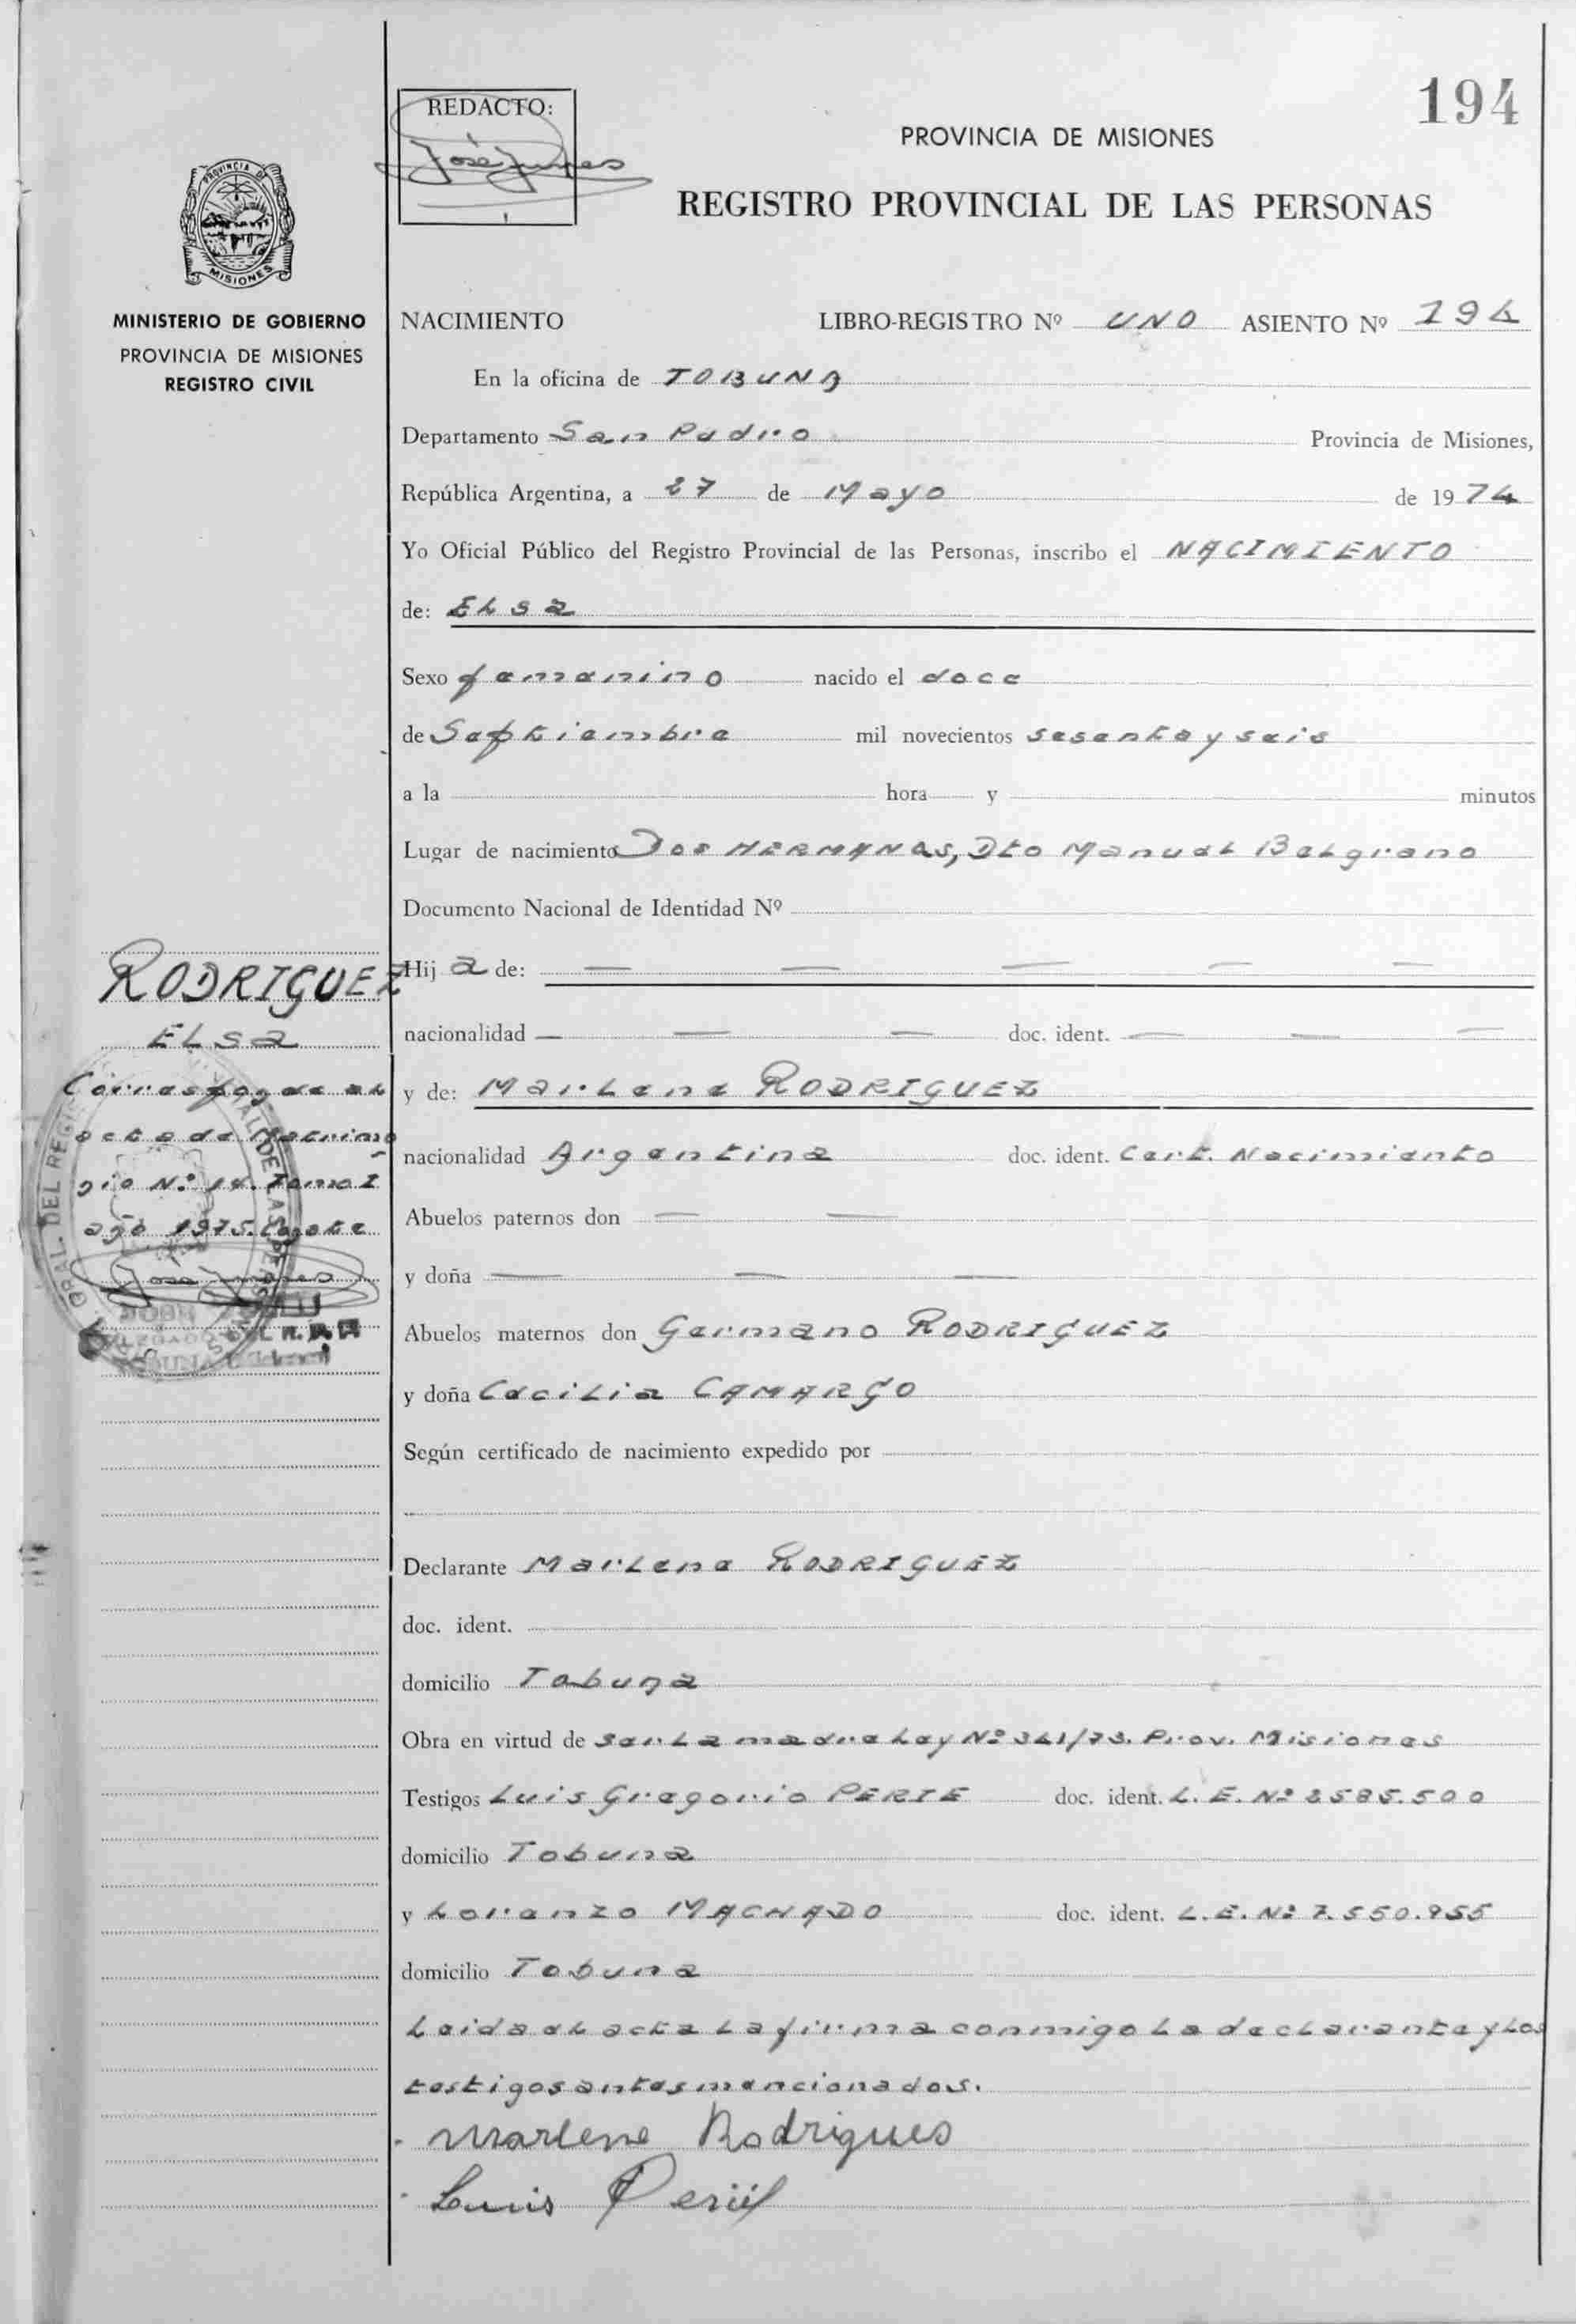 194
REDACTO:
José
PROVINCIA DE MISIONES
REGISTRO PROVINCIAL DE LAS PERSONAS
PROVINCIA DE
MISIONES
MINISTERIO DE GOBIERNO
PROVINCIA DE MISIONES
REGISTRO CIVIL
NACIMIENTO LIBRO-REGISTRO Nº UNO ASIENTO Nº 194
En la oficina de TOBUNA
Departamento San Pedro Provincia de Misiones,
República Argentina, a 27 de Mayo de 1974
Yo Oficial Público del Registro Provincial de las Personas, inscribo el NACIMIENTO
de: Elsa
Sexo femenino nacido el doce
de Septiembre mil novecientos sesenta y seis
a la hora y minutos
Lugar de nacimiento Dos HERMANAS, Dto Manuel Belgrano
Documento Nacional de Identidad Nº
Hija de: — — — — —
nacionalidad — — — doc. ident. — — —
y de: Marlene RODRIGUEZ
nacionalidad Argentina doc. ident. Cert. Nacimiento
Abuelos paternos don — —
y doña — — —
Abuelos maternos don Germano RODRIGUEZ
y doña Cecilia CAMARGO
Según certificado de nacimiento expedido por
Declarante Marlene RODRIGUEZ
doc. ident.
domicilio Tobuna
Obra en virtud de ser la madre Ley Nº 341/73. Prov. Misiones
Testigos Luis Gregorio PERIE doc. ident. L. E. Nº 2585.500
domicilio Tobuna
y Lorenzo MACHADO doc. ident. L. E. Nº 7.550.955
domicilio Tobuna
Leida el acta la firma conmigo la declarante y los
testigos antes mencionados.
Marlene Rodrigues
Luis
RODRIGUEZ
ELsa
Corresponde al
acta de Matrimo
nio Nº 14. Tomo I
año 1975. Conste
José